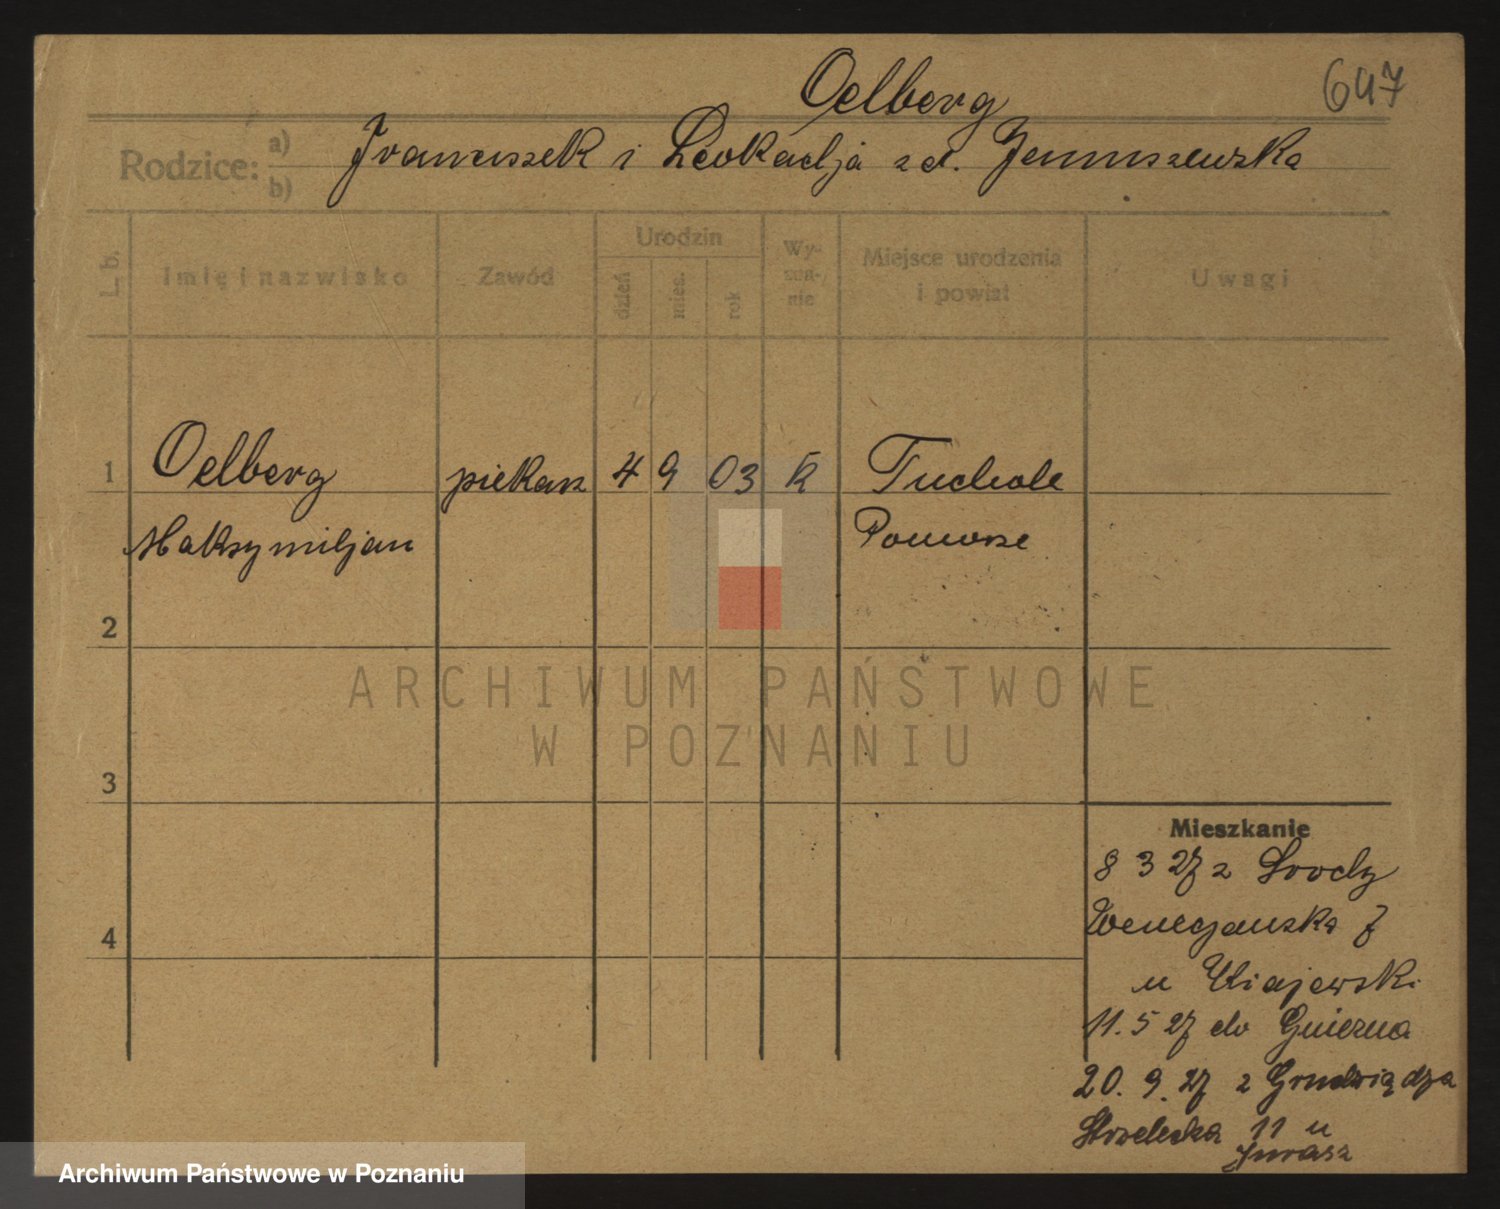 Oelberg
647
Rodzice: a) b) Franciszek i Leokadja z d. Januszewska
L. b.
Imię i nazwisko
Zawód
Urodzin
dzień
mies.
rok
Wy-
zna-
nie
Miejsce urodzenia
i powiat
Uwagi
1 Oelberg piekarz 4 9 03 k Tuchole
Maksymiljan Pomorze
2
ARCHIWUM PAŃSTWOWE
W POZNANIU
3
Mieszkanie
8 3 27 z Środy
4 Wenecjańska 7
u
11. 5 27 do Gniezna
20. 9. 27 z Grudziądza
Strzelecka 11 u
Jurasz
Archiwum Państwowe w Poznaniu